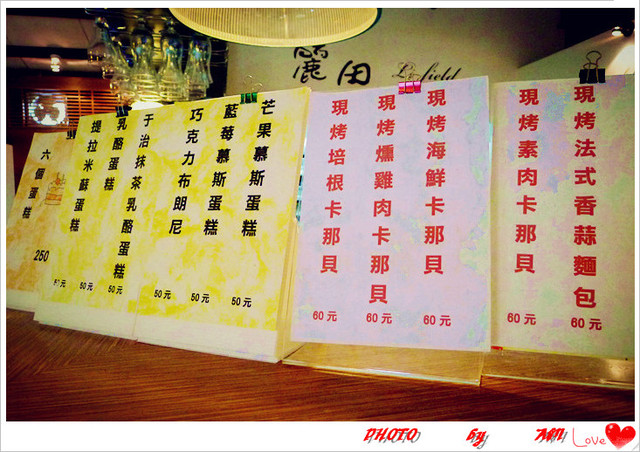 麗田
Lifield
現烤法式香蒜麵包
60元
現烤素肉卡那貝
60元
現烤海鮮卡那貝
60元
現烤燻雞肉卡那貝
60元
現烤培根卡那貝
60元
芒果慕斯蛋糕
50元
藍莓慕斯蛋糕
50元
巧克力布朗尼
50元
于治抹茶乳酪蛋糕
50元
乳酪蛋糕
50元
提拉米蘇蛋糕
50元
六個蛋糕
250
PHOTO by MIL
Love